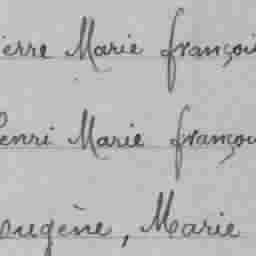 ierre Marie françoi
enri Marie françoi
eugène, Marie